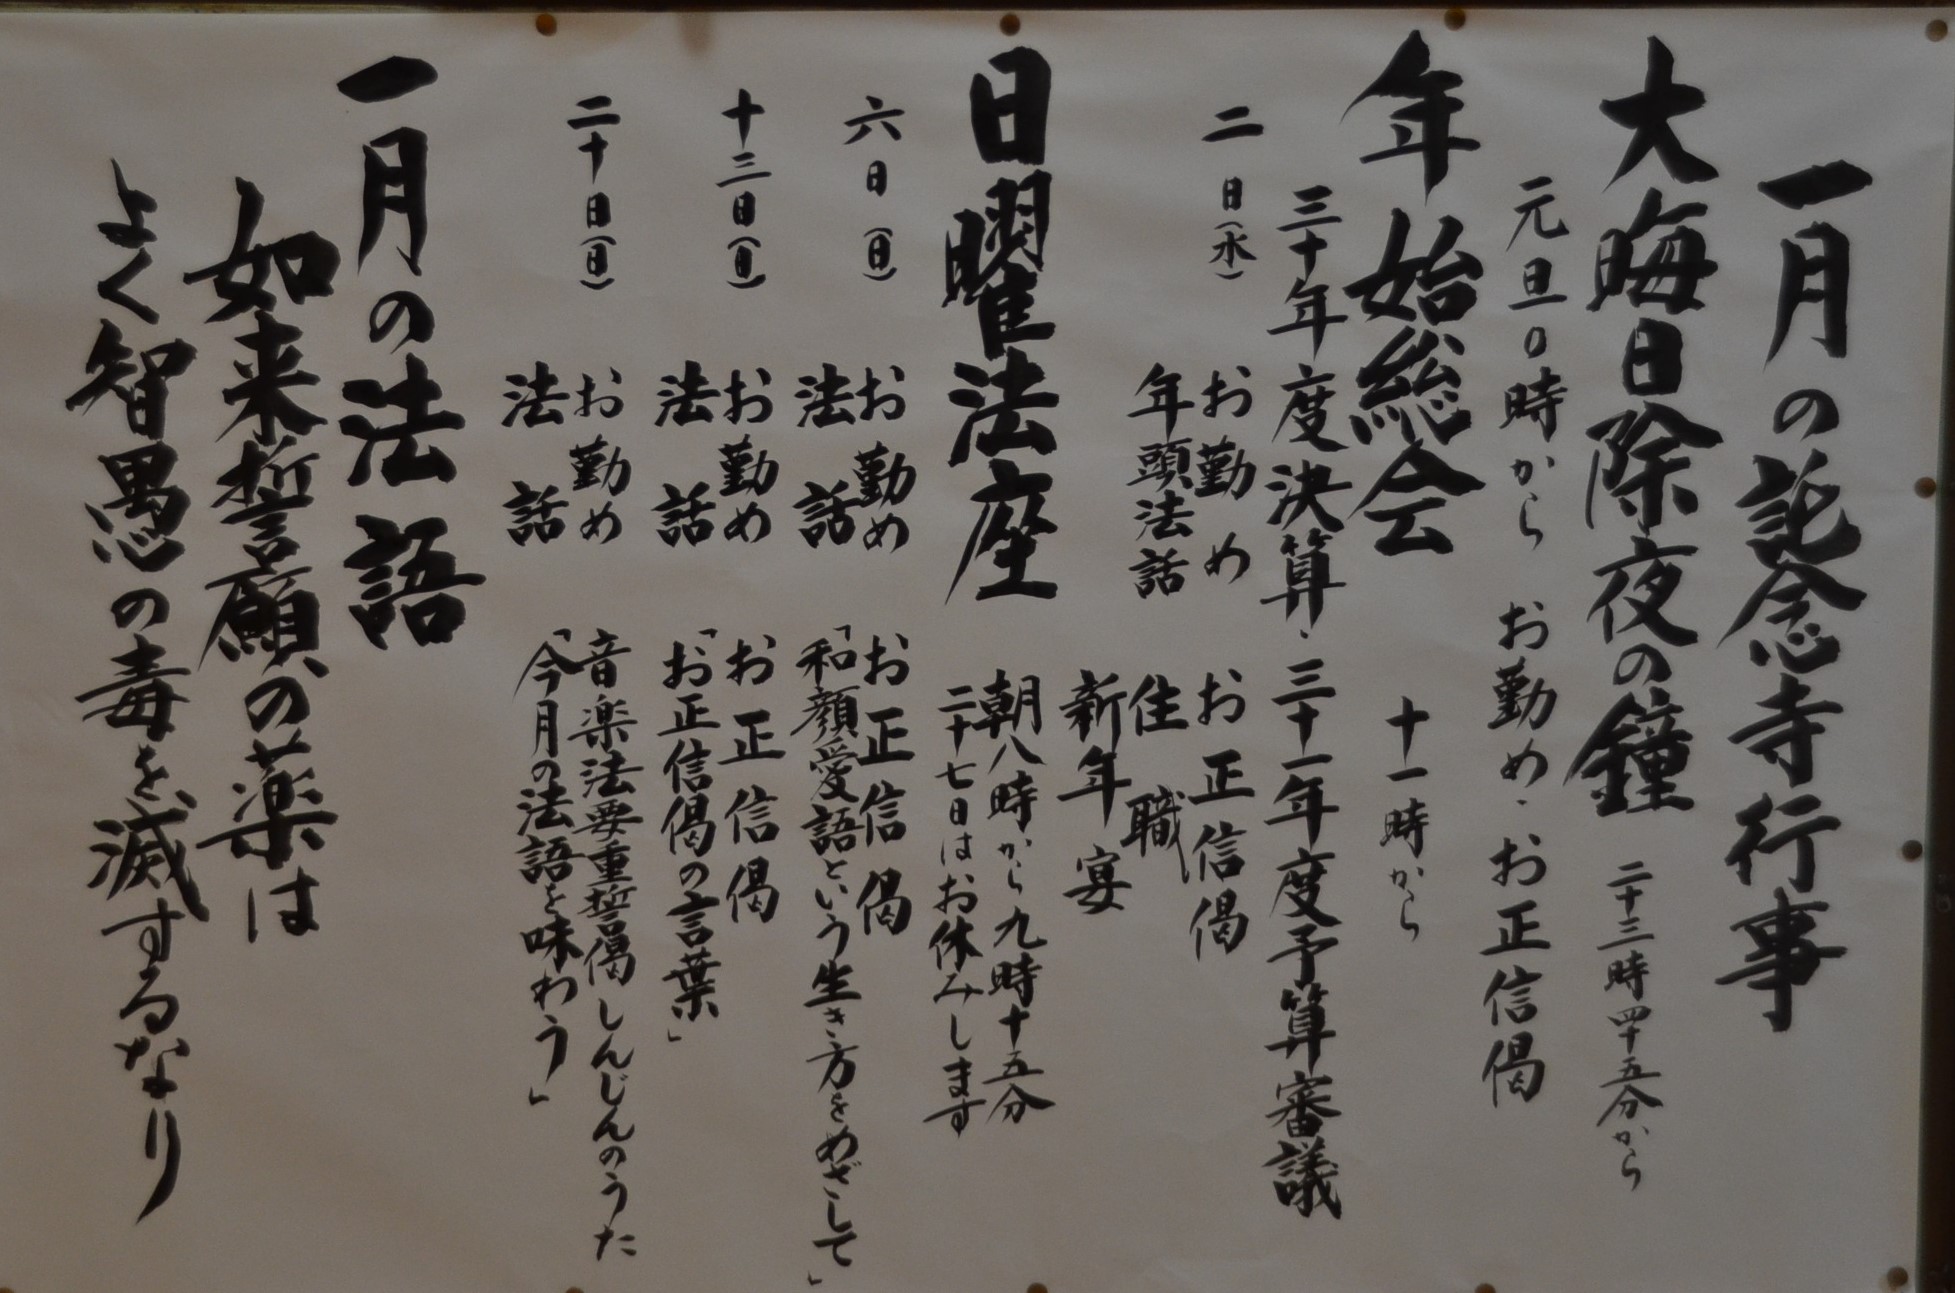 一月の記念寺行事
大晦日除夜の鐘 二十三時四十五分から
元旦0時から お勤め、お正信偈
年始総会 十一時から
三十年度決算、三十一年度予算審議
二日(水) お勤め お正信偈
年頭法話 住職
新年宴
日曜法座 朝八時から九時十五分
二十七日はお休みします
六日(日) お勤め お正信偈
法話 「和顔愛語という生き方をめざして」
十三日(日) お勤め お正信偈
法話 「お正信偈の言葉」
二十日(日) お勤め 音楽法要重誓偈しんじんのうた
法話 「今月の法語を味わう」
一月の法語
如来誓願の薬は
よく智愚の毒を滅するなり